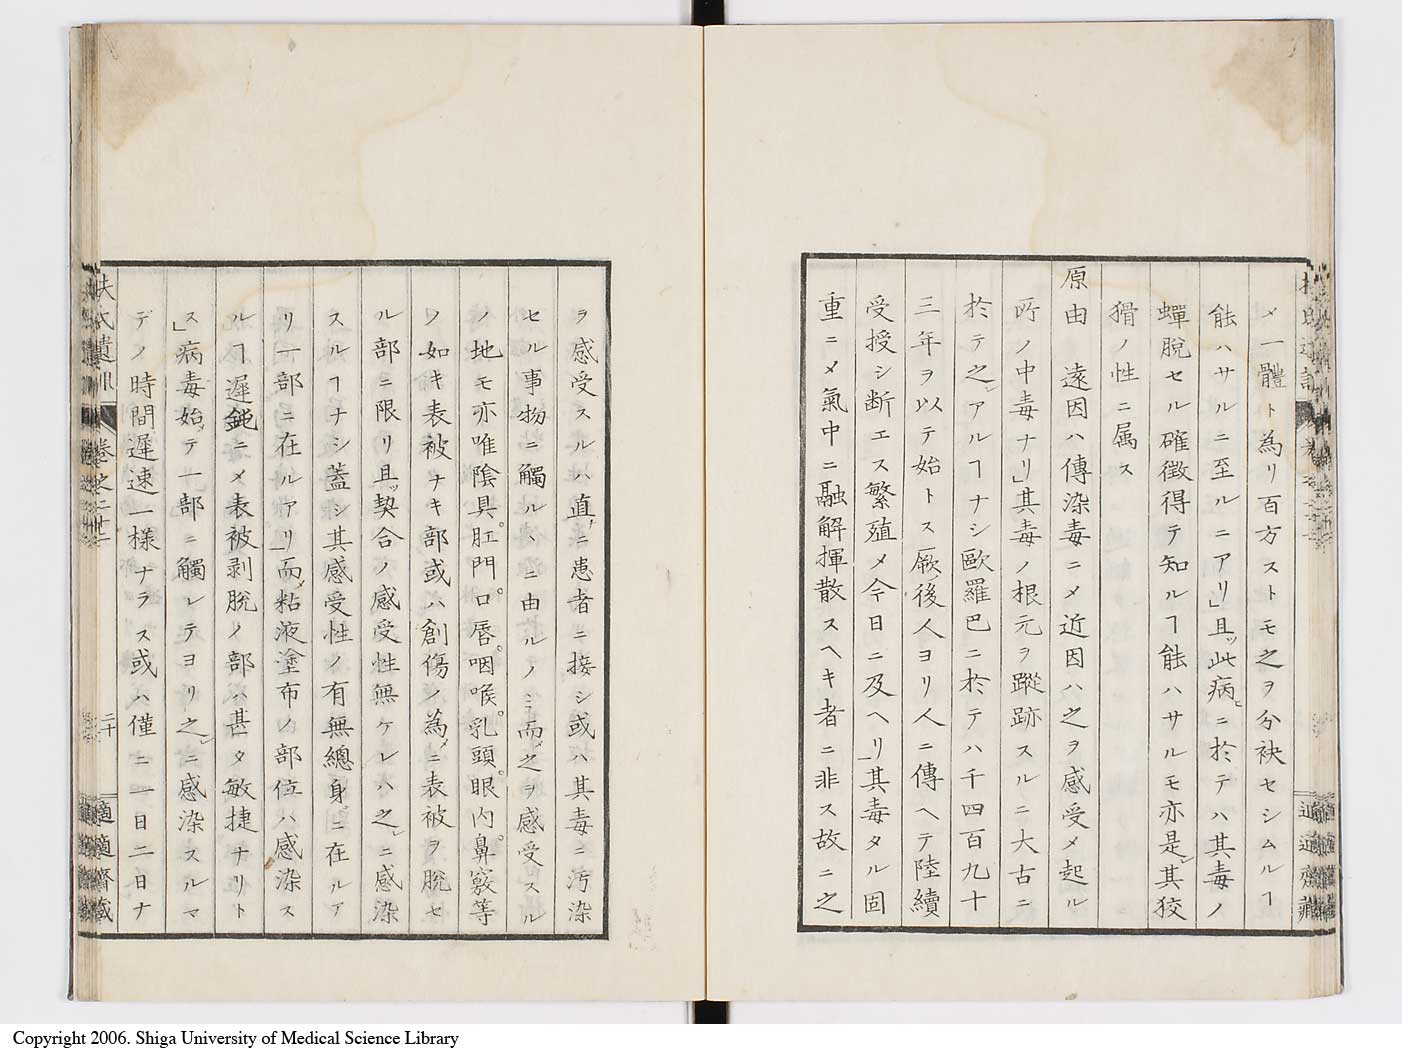 メ一體ト為リ百方ストモ之ヲ分袂セシムルヿ
能ハサルニ至ルニアリ」且ッ此病ニ於テハ其毒ノ
蟬脫セル確徵得テ知ルヿ能ハサルモ亦是レ其狡
猾ノ性ニ属ス
原由 遠因ハ傳染毒ニメ近因ハ之ヲ感受メ起ル
所ノ中毒ナリ」其毒ノ根元ヲ蹤跡スルニ大古ニ
於テ之レアルヿナシ歐羅巴ニ於テハ千四百九十
三年ヲ以テ始トス厥後人ヨリ人ニ傳ヘテ陸續
受授シ断エス繁殖メ今日ニ及ヘリ」其毒タル固
重ニメ氣中ニ融解揮散スヘキ者ニ非ス故ニ之
ヲ感受スルハ直ニ患者ニ接シ或ハ其毒ニ汚染
セル事物ニ觸ルヽニ由ルノミ而メ之ヲ感受スル
ノ地モ亦唯陰具。肛門。口。唇。咽喉。乳頭。眼內。鼻竅等
ノ如キ表被ナキ部或ハ創傷ノ為メニ表被ヲ脫セ
ル部ニ限リ且ッ契合ノ感受性無ケレハ之レニ感染
スルヿナシ蓋シ其感受性ノ有無總身ニ在ルア
リ一部ニ在ルアリ」而メ粘液塗布ノ部位ハ感染ス
ルヿ遲鈍ニメ表被剥脫ノ部ハ甚タ敏捷ナリト
ス」病毒始メテ一部ニ觸レテヨリ之レニ感染スルマ
デノ時間遲速一様ナラス或ハ僅ニ一日二日ナ
扶氏遺訓 卷之二十二
二十
適適齋藏
Copyright 2006. Shiga University of Medical Science Library